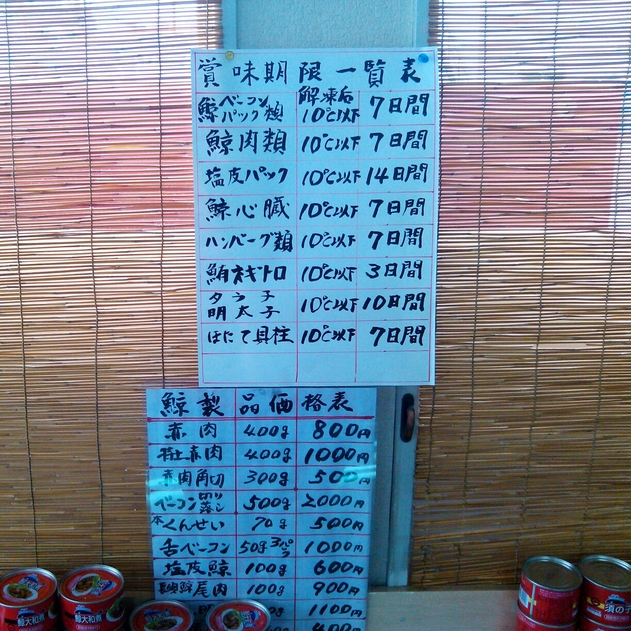 賞味期限一覧表
鯨ベーコンパック類 解凍后10℃以下 7日間
鯨肉類 10℃以下 7日間
塩皮パック 10℃以下 14日間
鯨心臓 10℃以下 7日間
ハンバーグ類 10℃以下 7日間
鮪ネギトロ 10℃以下 3日間
タラ子
明太子 10℃以下 10日間
ほたて貝柱 10℃以下 7日間
鯨製品価格表
赤肉 400g 800円
特上赤肉 400g 1000円
赤肉角切 300g 500円
ベーコン切り落し 500g 2000円
本くんせい 70g 500円
舌ベーコン 50g3パック 1000円
塩皮鯨 100g 600円
尾肉 100g 900円
100g 1100円
400円
鯨大和煮
須の子